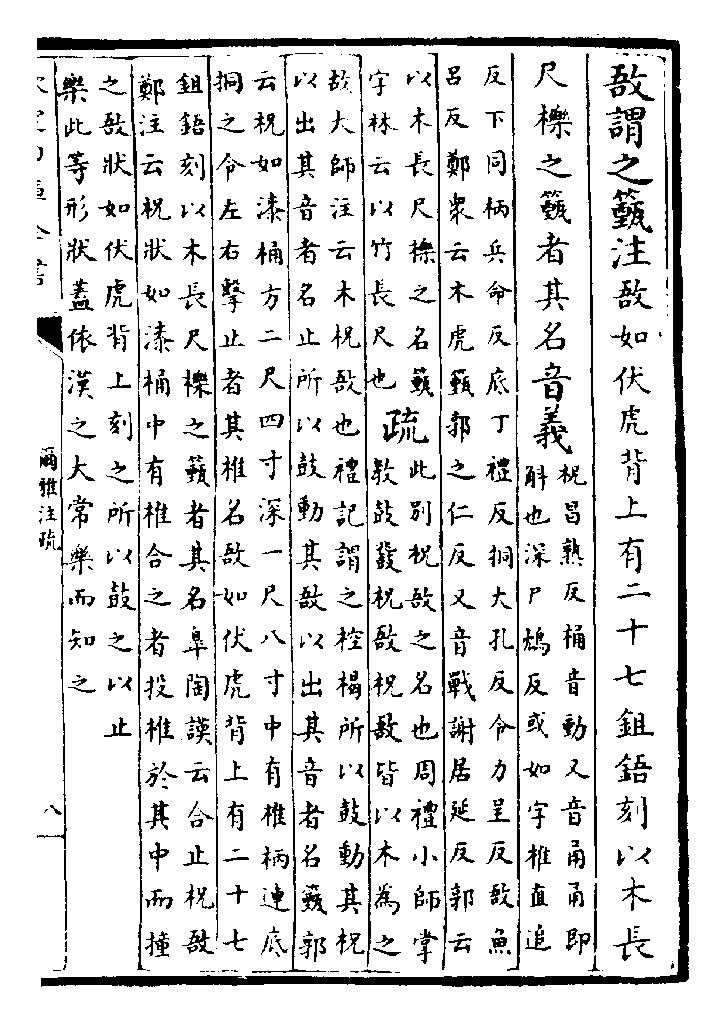 敔謂之籈注敔如伏虎背上有二十七鉏鋙刻以木長
尺櫟之籈者其名音義
柷昌熟反桶音動又音甬甬即
斛也深尸鴆反或如字椎直追
反下同柄兵命反底丁禮反挏大孔反令力呈反敔魚
吕反鄭衆云木虎籈郭之仁反又音戰謝居延反郭云
以木長尺櫟之名籈
字林云以竹長尺也
疏
此別柷敔之名也周禮小師掌
敎鼓發柷敔柷敔皆以木為之
故大師注云木柷敔也禮記謂之椌楬所以鼓動其柷
以出其音者名止所以鼓動其敔以出其音者名籈郭
云柷如漆桶方二尺四寸深一尺八寸中有椎柄連底
挏之令左右擊止者其椎名敔如伏虎背上有二十七
鉏鋙刻以木長尺櫟之籈者其名臯陶謨云合止柷敔
鄭注云柷狀如漆桶中有椎合之者投椎於其中而撞
之敔狀如伏虎背上刻之所以鼓之以止
樂此等形狀蓋依漢之大常樂而知之
欽定四庫全書
爾雅注疏
八